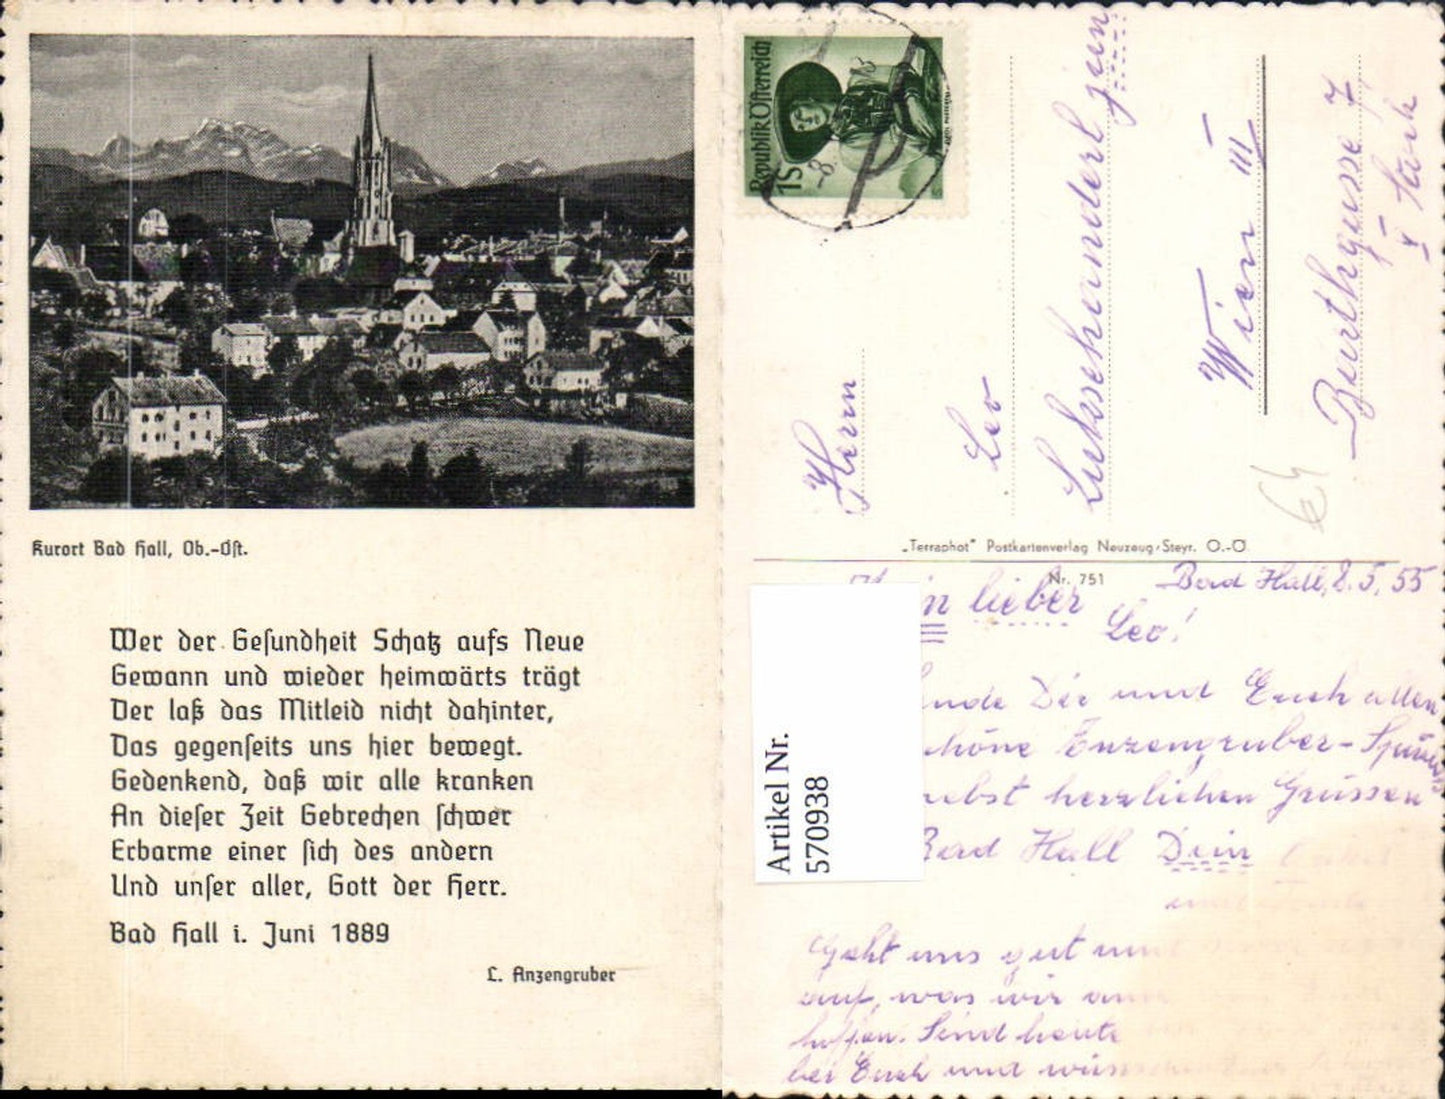 Kurort Bad Hall, Ob.-Öst.
Wer der Gesundheit Schatz aufs Neue
Gewann und wieder heimwärts trägt
Der laß das Mitleid nicht dahinter,
Das gegenseits uns hier bewegt.
Gedenkend, daß wir alle kranken
An dieser Zeit Gebrechen schwer
Erbarme einer sich des andern
Und unser aller, Gott der Herr.
Bad Hall i. Juni 1889
L. Anzengruber
Republik Österreich
1S
Herrn
Leo
jun
Wien III
7
I. Stock
„Terraphot“ Postkartenverlag Neuzeug-Steyr. O.-Ö.
Nr. 751
Bad Hall, 8.5.55
lieber
Leo!
Dir und Euch allen
Anzengruber-
nebst herzlichen Grüssen
Bad Hall Dein
Geht uns gut und
auf, was wir
hoffen. Sind heute
bei Euch und
Artikel Nr.
570938